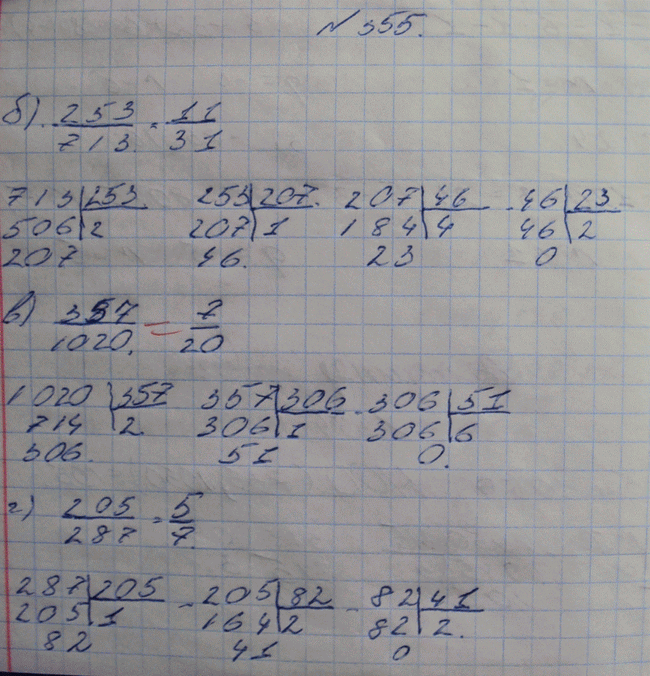 № 355.
б) 253/713 = 11/31
713 | 253 253 | 207 207 | 46 46 | 23
506 | 2 207 | 1 184 | 4 46 | 2
207 46. 23 0
в) 357/1020 = 7/20
1020 | 357 357 | 306 306 | 51
714 | 2 306 | 1 306 | 6
306 51 0.
г) 205/287 = 5/7
287 | 205 205 | 82 82 | 41
205 | 1 164 | 2 82 | 2.
82 41 0